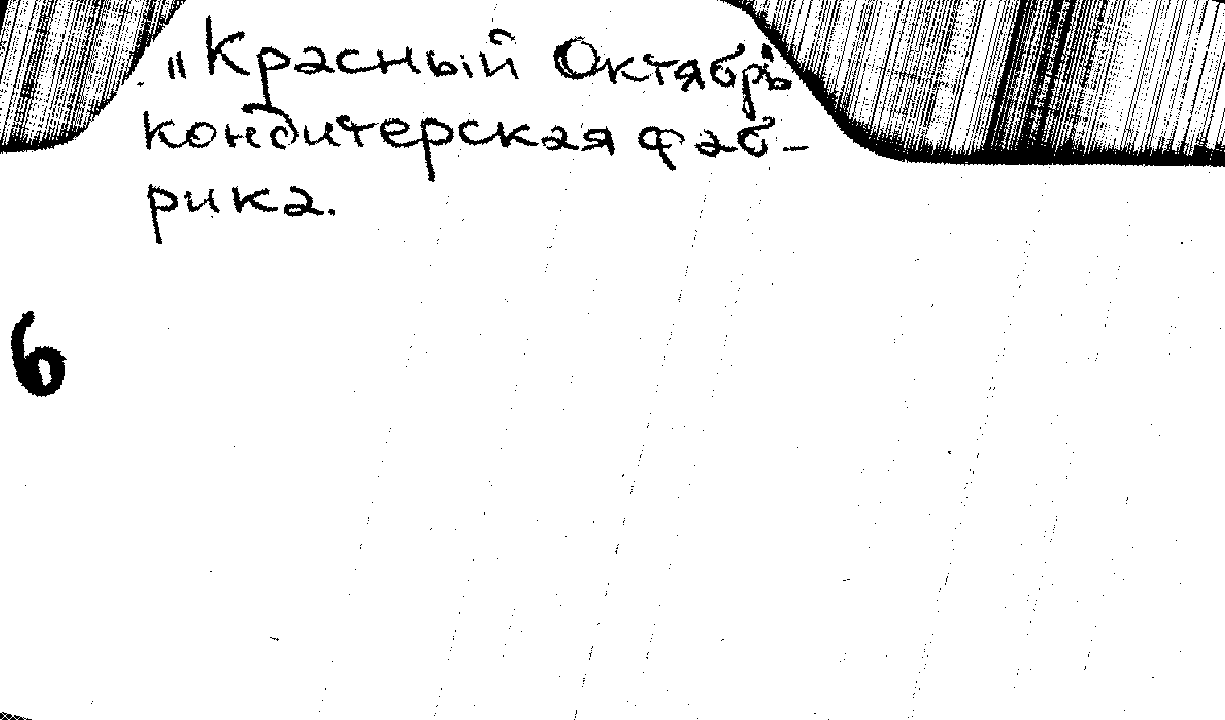 "Красный Октябрь"
кондитерская фаб-
рика.
6